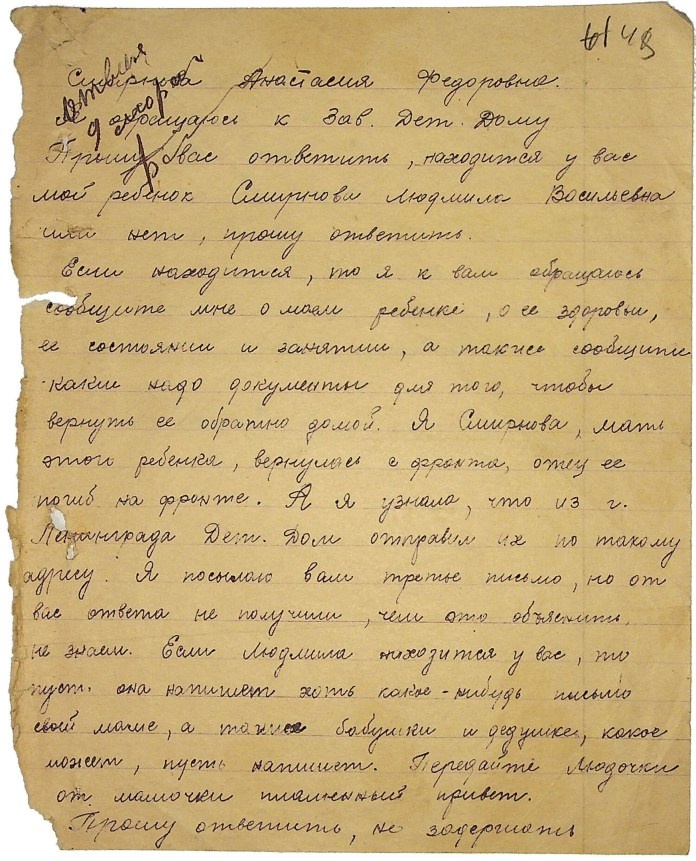 Ю/43
Смирнова Анастасия Федоровна.
обращаюсь к Зав. Дет. Дому
Прошу Вас ответить, находится у вас
мой ребенок Смирнова Людмила Васильевна
или нет, прошу ответить.
Если находится, то я к вам обращаюсь
сообщите мне о моем ребенке, о ее здоровьи,
ее состоянии и занятии, а также сообщите
какие надо документы для того, чтобы
вернуть ее обратно домой. Я Смирнова, мать
этого ребенка, вернулась с фронта, отец ее
погиб на фронте. А я узнала, что из г.
Ленинграда Дет. Дом отправили их по такому
адресу. Я посылаю вам третье письмо, но от
вас ответа не получили, чем это объяснить,
не знаем. Если Людмила находится у вас, то
пуст. она напишет хоть какое-нибудь письмо
свой маме, а также бабушки и дедушке, какое
может, пусть напишет. Передайте Людочки
от мамочки пламенный привет.
Прошу ответить, не задержать